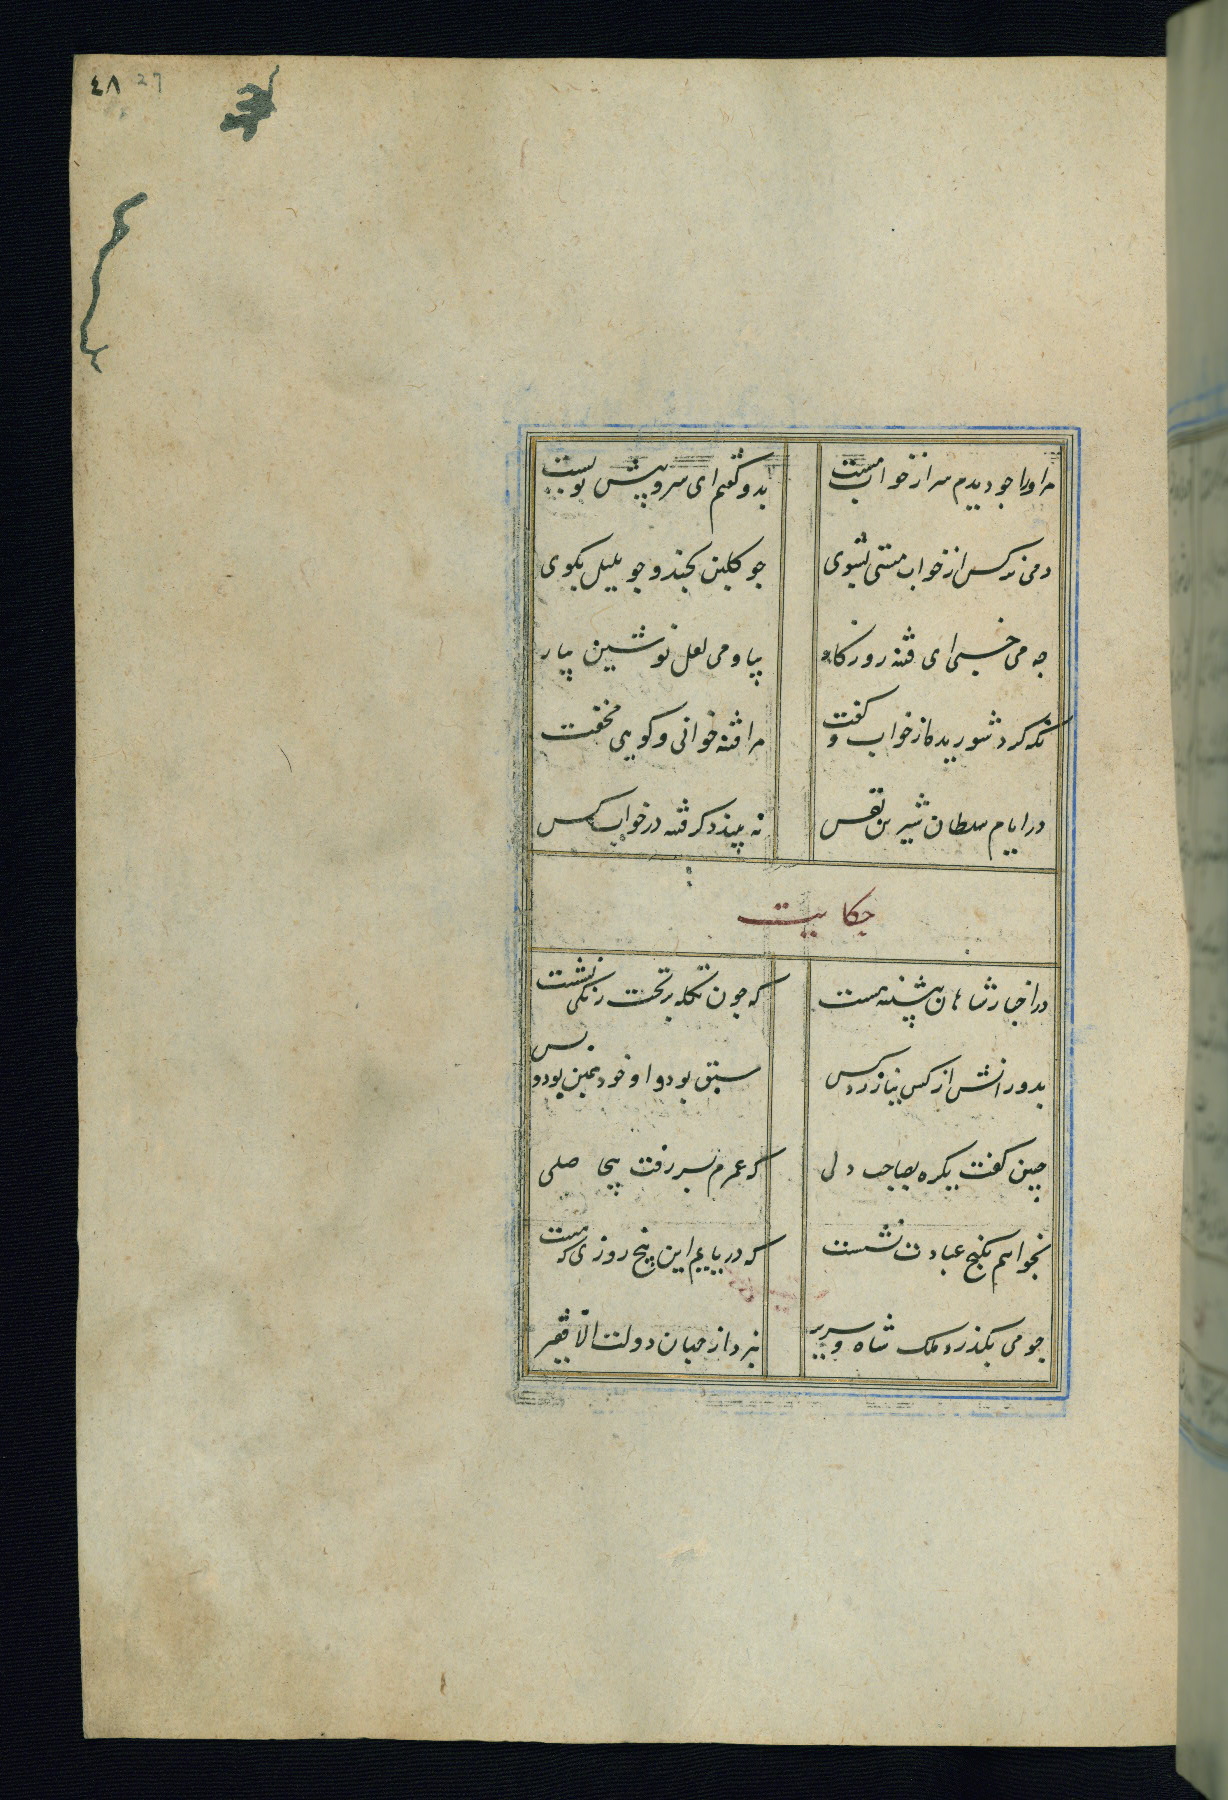 ٤٨ 27
مرا ورا جو دیدم سر از خواب مست
بدو گفتم ای سرو پیش تو پست
دمی نرکس از خواب مستی بشوی
جو کلبن بخند و جو بلبل بکوی
چه می خسبی ای فتنه روزکار
بیا و می لعل نوشین بیار
نکه کرد شوریده از خواب و کفت
مرا فتنه خوانی و کویی مخفت
در ایام سلطان شیرین نفس
نه بیند دکر فتنه در خواب کس
حکایت
در اخبار شاهان پیشینه هست
که جون تکله بر تخت زنکی نشست
بدورانش از کس نیازرد کس
سبق بود و او خود همین بود و بس
چنین کفت یکره بصاحب دلی
که عمرم بسر رفت بیحاصلی
بخواهم بکنج عبادت نشست
که دریابم این پنج روزی که هست
جو می بکذرد ملک شاه و سریر
نبرد از جهان دولت الّا فقیر